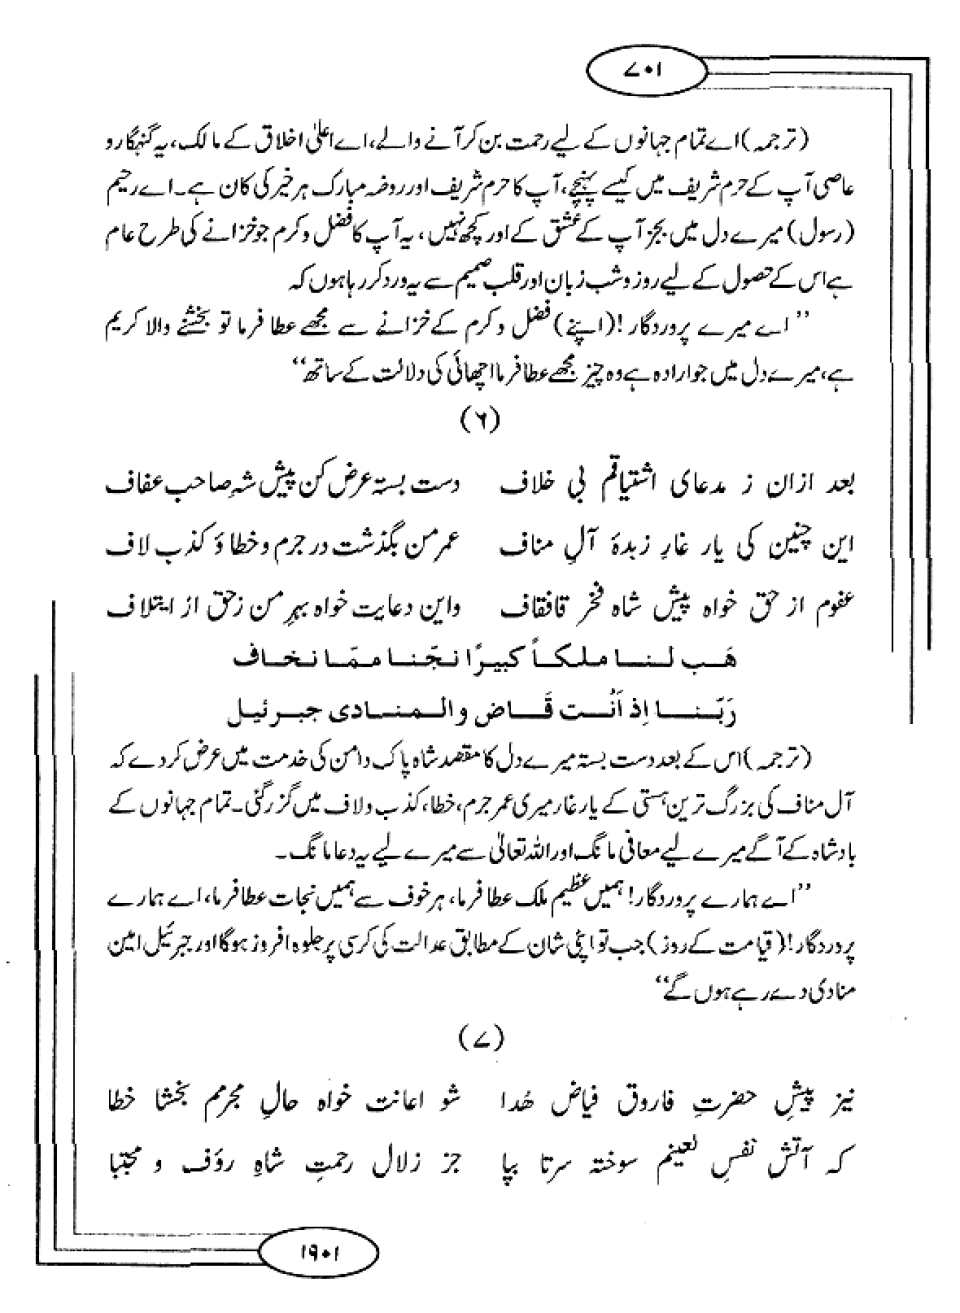 ۷۰۱
(ترجمہ) اے تمام جہانوں کے لیے رحمت بن کر آنے والے، اے اعلیٰ اخلاق کے مالک، یہ گنہگار و
عاصی آپ کے حرم شریف میں کیسے پہنچے، آپ کا حرم شریف اور روضہ مبارک ہر خیر کی کان ہے۔ اے رحیم
(رسول) میرے دل میں بجز آپ کے عشق کے اور کچھ نہیں، یہ آپ کا فضل و کرم جو خزانے کی طرح عام
ہے اس کے حصول کے لیے روز و شب زبان اور قلب صمیم سے یہ ورد کر رہا ہوں کہ
’’اے میرے پروردگار! (اپنے) فضل و کرم کے خزانے سے مجھے عطا فرما تو بخشنے والا کریم
ہے، میرے دل میں جو ارادہ ہے وہ چیز مجھے عطا فرما اچھائی کی دلالت کے ساتھ‘‘
(۶)
بعد ازان ز مدعای اشتیاقم بی خلاف دست بستہ عرض کن پیش شہِ صاحب عفاف
این چنین کی یار غارِ زبدۂ آلِ مناف عمر من بگذشت در جرم و خطا ؤ کذب لاف
عفوم از حق خواہ پیش شاہ فخر قافقاف واین دعایت خواہ بہرِ من زحق از ایتلاف
هَب لنا ملكاً كبيرًا نجّنا ممّا نخاف
رَبّنا اِذ اَنْت قَاض والمنادی جبرئیل
(ترجمہ) اس کے بعد دست بستہ میرے دل کا مقصد شاہ پاک دامن کی خدمت میں عرض کر دے کہ
آل مناف کی بزرگ ترین ہستی کے یار غار میری عمر جرم، خطا، کذب و لاف میں گزر گئی۔ تمام جہانوں کے
بادشاہ کے آگے میرے لیے معافی مانگ اور اللہ تعالیٰ سے میرے لیے یہ دعا مانگ۔
’’اے ہمارے پروردگار! ہمیں عظیم ملک عطا فرما، ہر خوف سے ہمیں نجات عطا فرما، اے ہمارے
پروردگار! (قیامت کے روز) جب تو اپنی شان کے مطابق عدالت کی کرسی پر جلوہ افروز ہوگا اور جبرئیل امین
منادی دے رہے ہوں گے‘‘
(۷)
نیز پیشِ حضرتِ فاروق فیاض ھُدا شو اعانت خواہ حالِ مجرمم بخشا خطا
کہ آتش نفسِ لعینم سوختہ سرتا بپا جز زلال رحمتِ شاہِ رؤف و مجتبا
۱۹۰۱